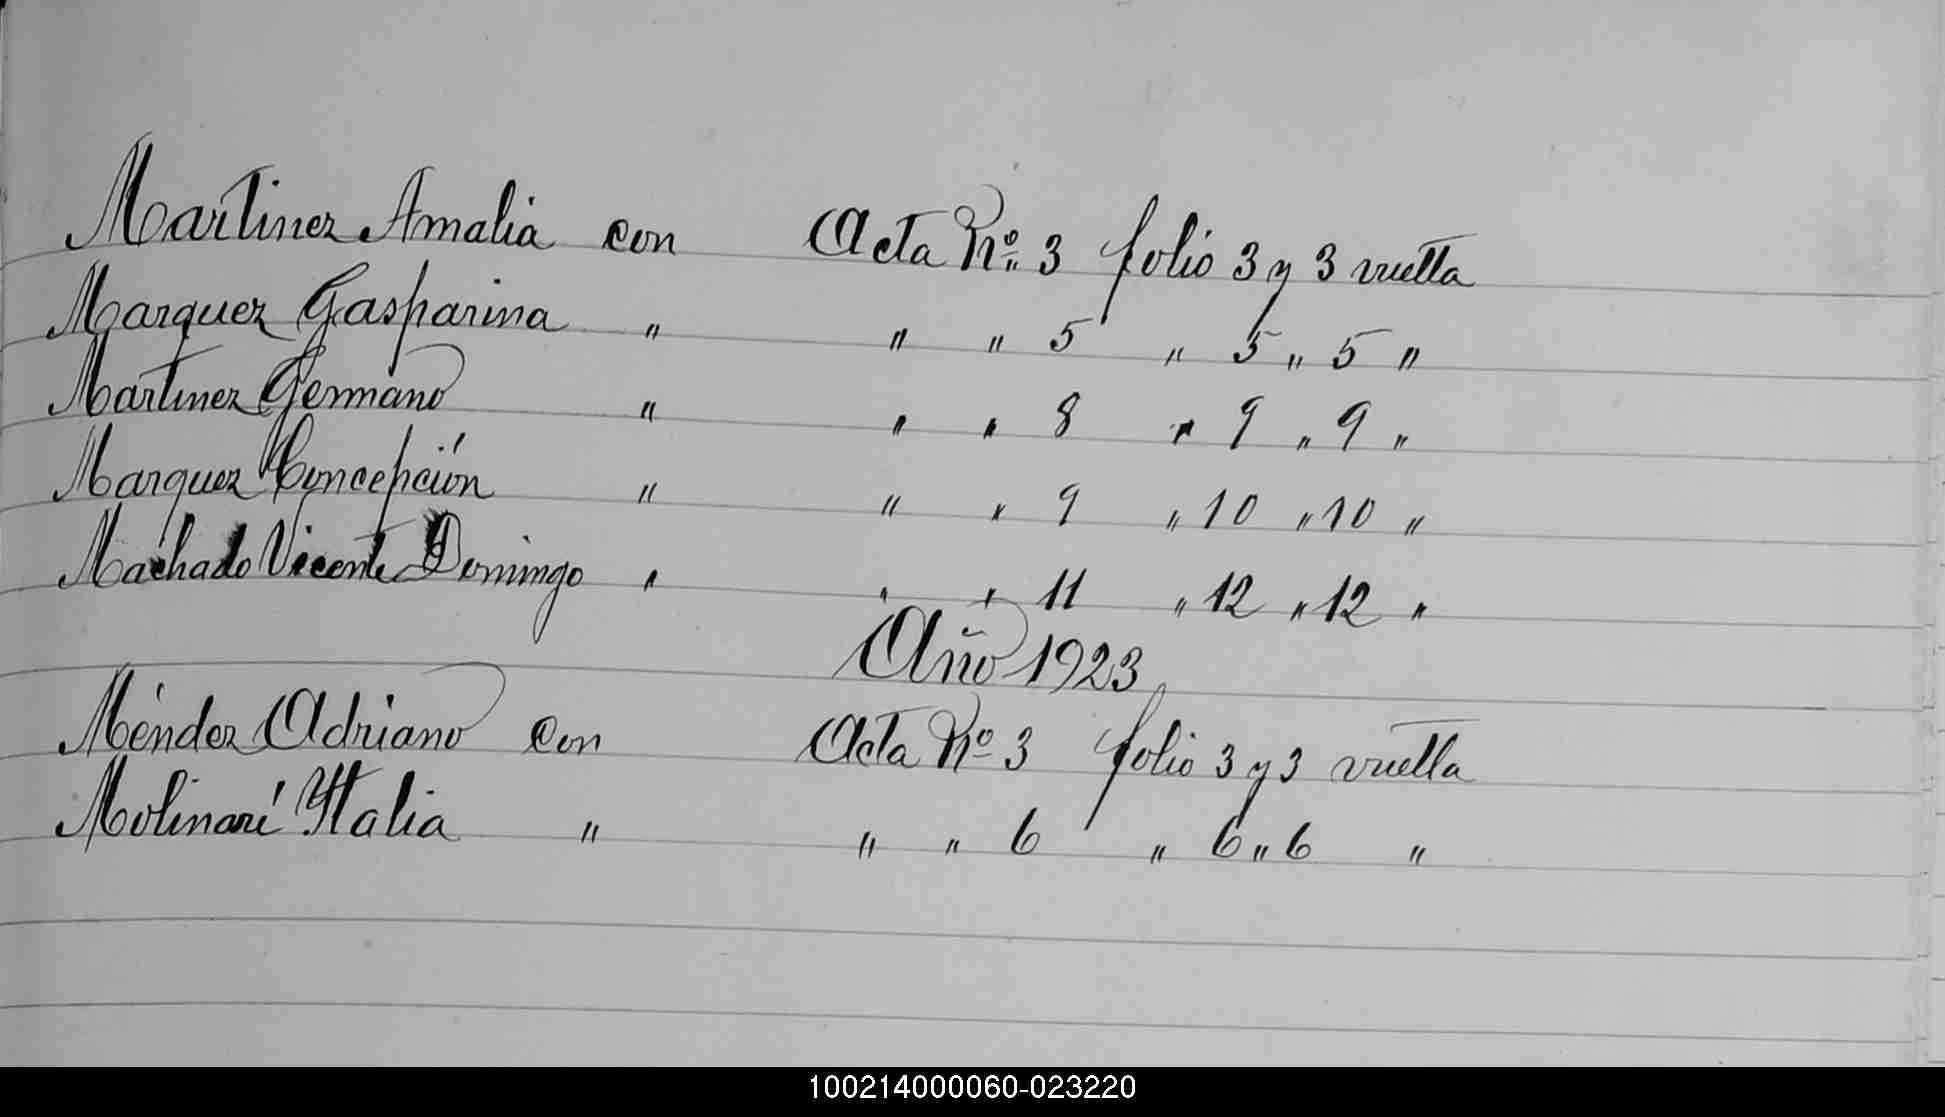 Martinez Amalia con Acta Nº 3 folio 3 y 3 vuelta
Marquez Gasparina " " " 5 " 5 " 5 "
Martinez Germano " " " 8 " 9 " 9 "
Marquez Concepción " " " 9 " 10 " 10 "
Machado Vicente Domingo " " " 11 " 12 " 12 "
Año 1923
Méndez Adriano con Acta Nº 3 folio 3 y 3 vuelta
Molinari Italia " " " 6 " 6 " 6 "
100214000060-023220